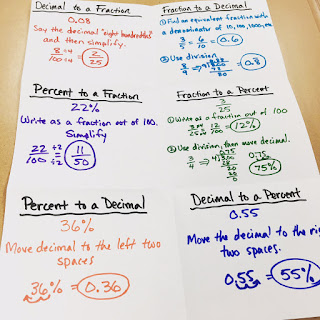 Decimal to a Fraction
0.08
Say the decimal "eight hundredths"
and then simplify.
8 ÷4
100 ÷4 = 2/25
Fraction to a Decimal
① Find an equivalent fraction with
a denominator of 10, 100, 1000, etc
3/5 = 6/10 = 0.6
② Use division
= 0.8
Percent to a Fraction
22%
Write as a fraction out of 100.
Simplify
22 ÷2
100 ÷2 = 11/50
Fraction to a Percent
3/25
① Write as a fraction out of 100
= 12/100 = 12%
② Use division, then move decimal.
3/4 → 4)3.00 0.75 0.75
28
20
75%
Percent to a Decimal
36%
Move decimal to the left two
spaces
36% = 0.36
Decimal to a Percent
0.55
Move the decimal to the
two spaces.
0.55 = 55%